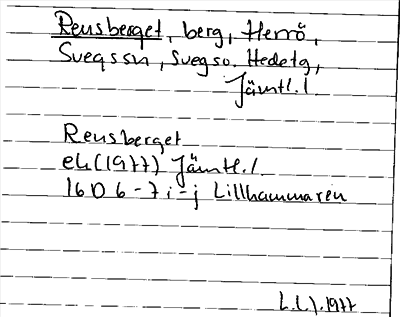 Rensberget, berg, Herrö,
Svegssn, Svegs o. Hedetg,
Jämtl. l.
Rensberget
ek (1977) Jämtl. l
16 D 6-7 i-j Lillhammaren
L. L. J. 1977